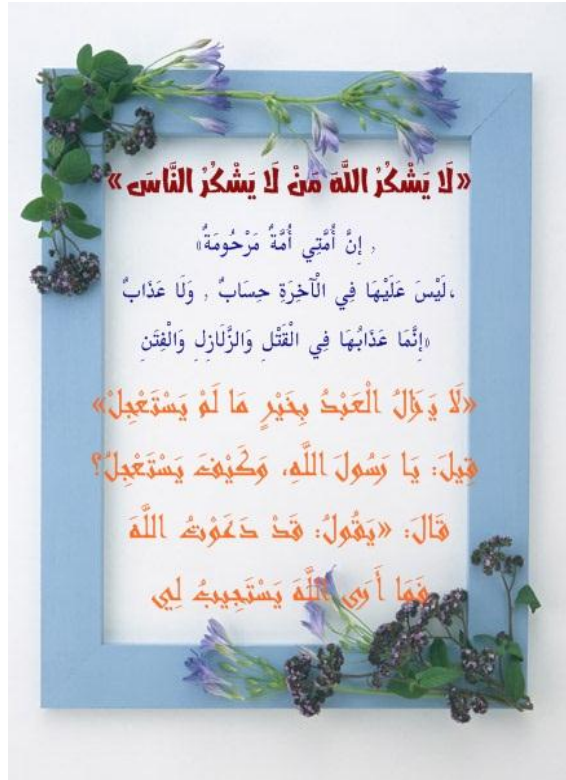 «لَا يَشْكُرُ اللَّهَ مَنْ لَا يَشْكُرُ النَّاسَ»
, إِنَّ أُمَّتِي أُمَّةٌ مَرْحُومَةٌ»
،لَيْسَ عَلَيْهَا فِي الْآخِرَةِ حِسَابٌ , وَلَا عَذَابٌ
«إِنَّمَا عَذَابُهَا فِي الْقَتْلِ وَالزَّلَازِلِ وَالْفِتَنِ
«لَا يَزَالُ الْعَبْدُ بِخَيْرٍ مَا لَمْ يَسْتَعْجِلْ»
قِيلَ: يَا رَسُولَ اللَّهِ، وَكَيْفَ يَسْتَعْجِلُ؟
قَالَ: «يَقُولُ: قَدْ دَعَوْتُ اللَّهَ
فَمَا أَرَى اللَّهَ يَسْتَجِيبُ لِي